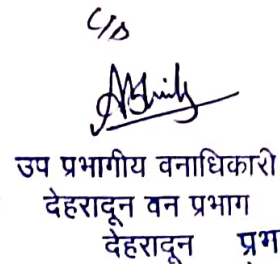 C/o
उप प्रभागीय वनाधिकारी
देहरादून वन प्रभाग
देहरादून प्रभ